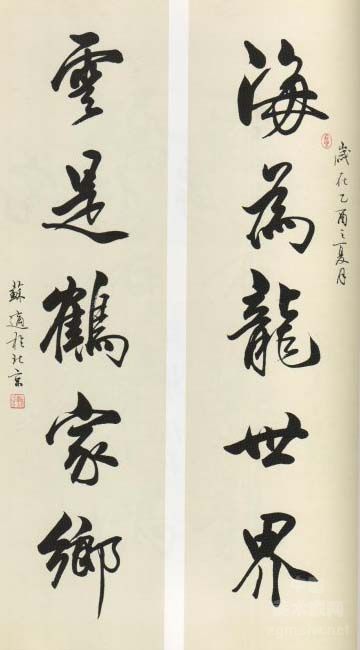 歲在乙酉之夏月
海為龍世界
雲是鶴家鄉
蘇適於北京